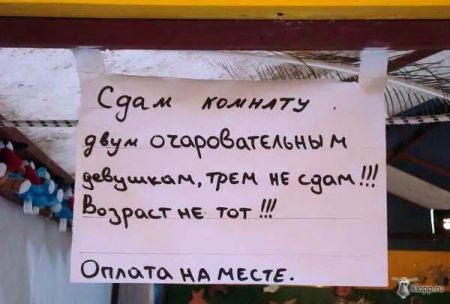 Сдам комнату
двум очаровательным
девушкам, трем не сдам!!!
Возраст не тот!!!
Оплата на месте.
Klopp.ru